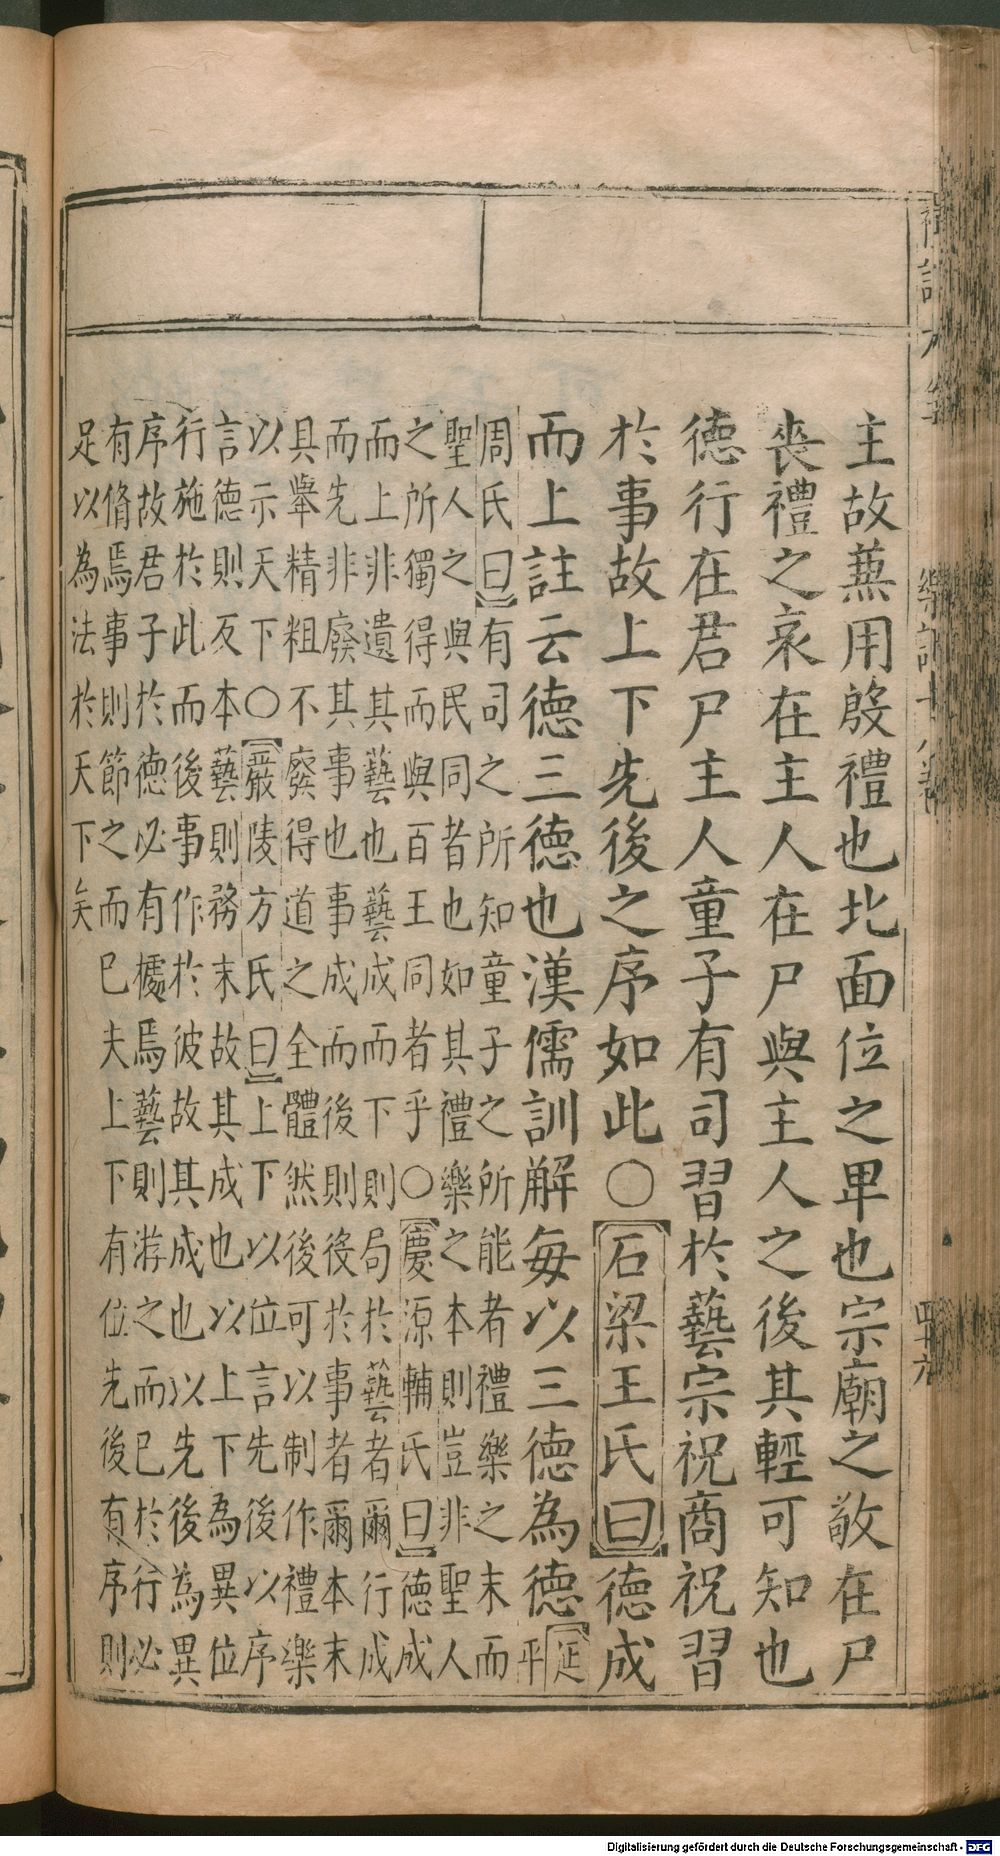 主故兼用殷禮也北面位之卑也宗廟之敬在尸
喪禮之哀在主人在尸與主人之後其輕可知也
德行在君尸主人童子有司習於藝宗祝商祝習
於事故上下先後之序如此○石梁王氏曰德成
而上註云德三德也漢儒訓解每以三德為德
延平
周氏曰有司之所知童子之所能者禮樂之末而
聖人之與民同者也如其禮樂之本則豈非聖人
之所獨得而與百王同者乎○慶源輔氏曰德成
而上非遺其藝也藝成而下則局於藝者爾行成
而先非廢其事也事成而後則後於事者爾本末
具舉精粗不廢得道之全體然後可以制作禮樂
以示天下○嚴陵方氏曰上下以位言先後以序
言德則反本藝則務末故其成也以上下為異位
行施於此而後事作於彼故其成也以先後為異
序故君子於德必有據焉藝則游之而已於行必
有脩焉事則節之而已夫上下有位先後有序則
足以為法於天下矣
樂記十九
四十六
Digitalisierung gefördert durch die Deutsche Forschungsgemeinschaft - DFG